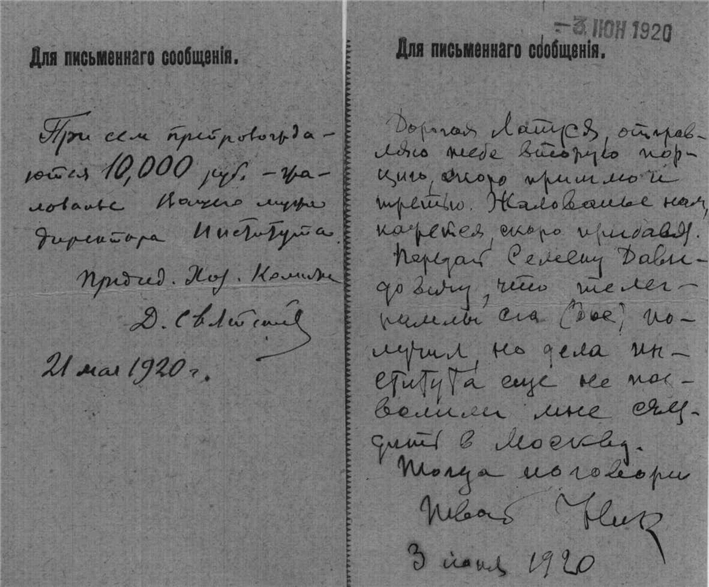 Для письменнаго сообщенія.
При сем препровожда-
ются 10,000 руб. – жа-
лованье Вашего мужа
директора Института.
Председ. Хоз. Комиссии
Д. Святский
21 мая 1920 г.
– 3 ІЮН 1920
Для письменнаго сообщенія.
Дорогая Латуся, отправ-
ляю тебе вторую пор-
цию, скоро пришлю и
третью. Жалованье нам,
кажется, скоро прибавят.
Передай Семену Давы-
довичу, что телег-
раммы его (две) по-
лучил, но дела ин-
ститута еще не поз-
волили мне съез-
дить в Москву.
Тогда поговорим
Твой Ник
3 июня 1920